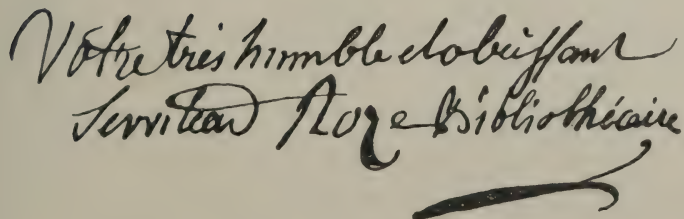 Votre très humble et obéissant
Serviteur Roze Bibliothécaire